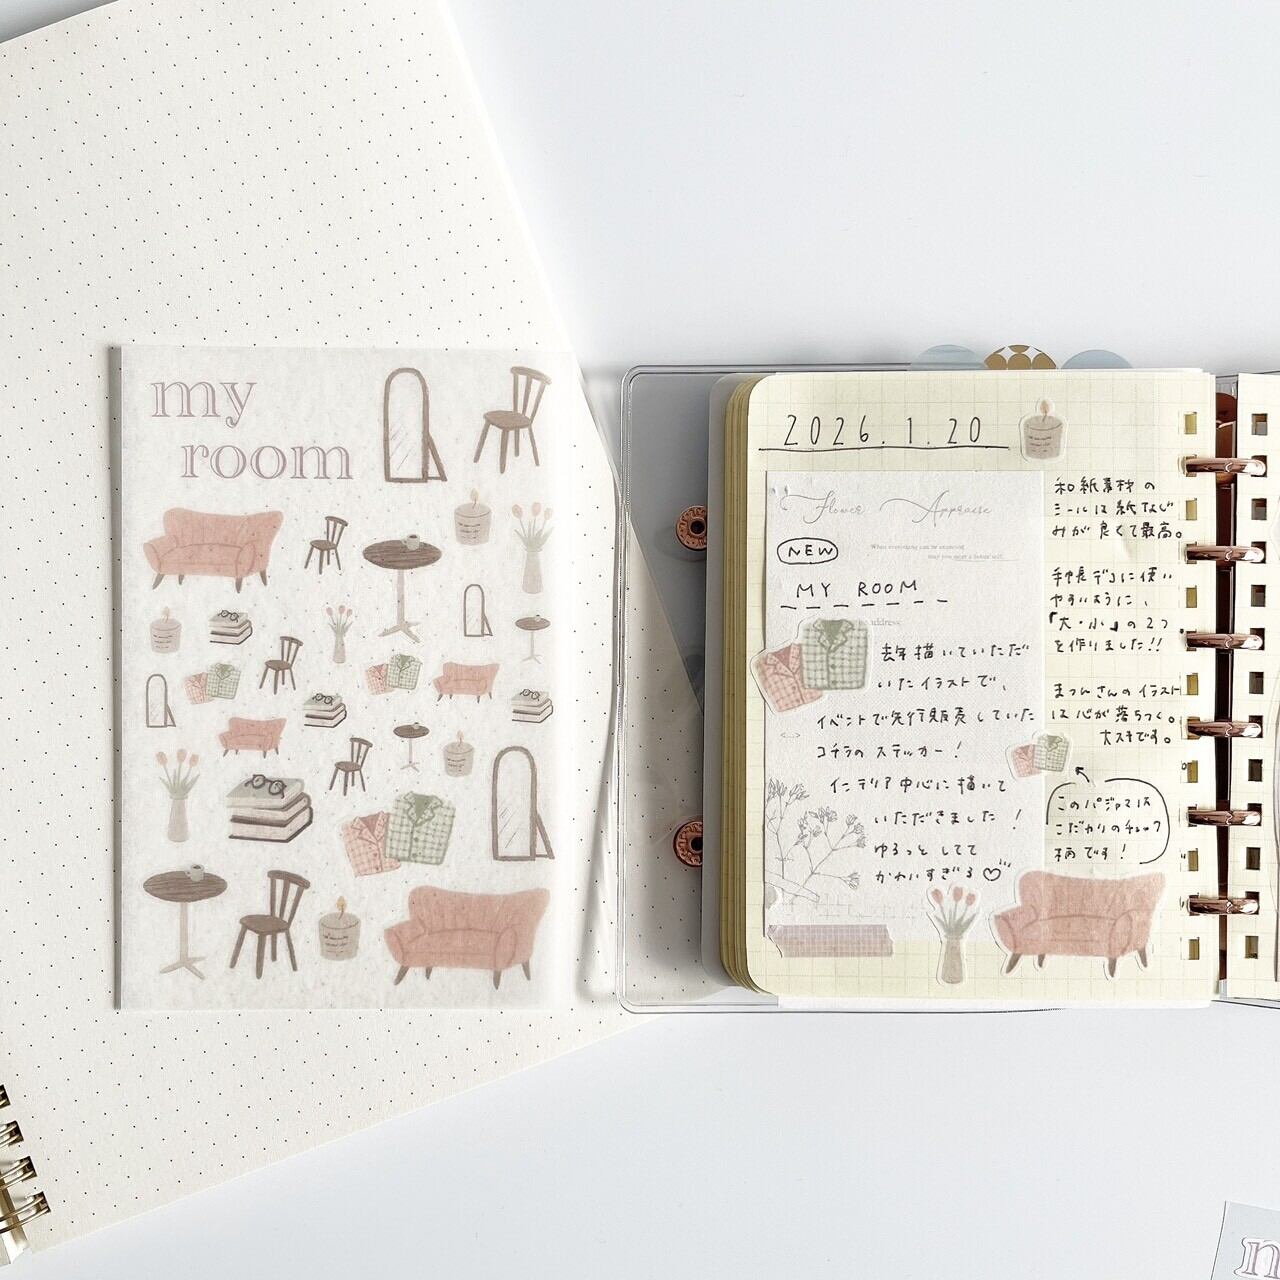 my
room
2026.1.20
Flower Appraise
NEW
When everything can be endured,
MY ROOM
address
去年描いていただ
いたイラストで、
イベントで先行販売していた
コチラのステッカー!
インテリア中心に描いて
いただきました!
ゆるっとしてて
かわいすぎる♡
和紙素材の
シールは紙なじ
みが良くて最高。
手帳デコに使い
やすいように、
「大・小」の2つ
を作りました!!
まつんさんのイラスト
は心が落ちつく。
大スキです。
このパジャマは
こだわりのチェック
柄です!